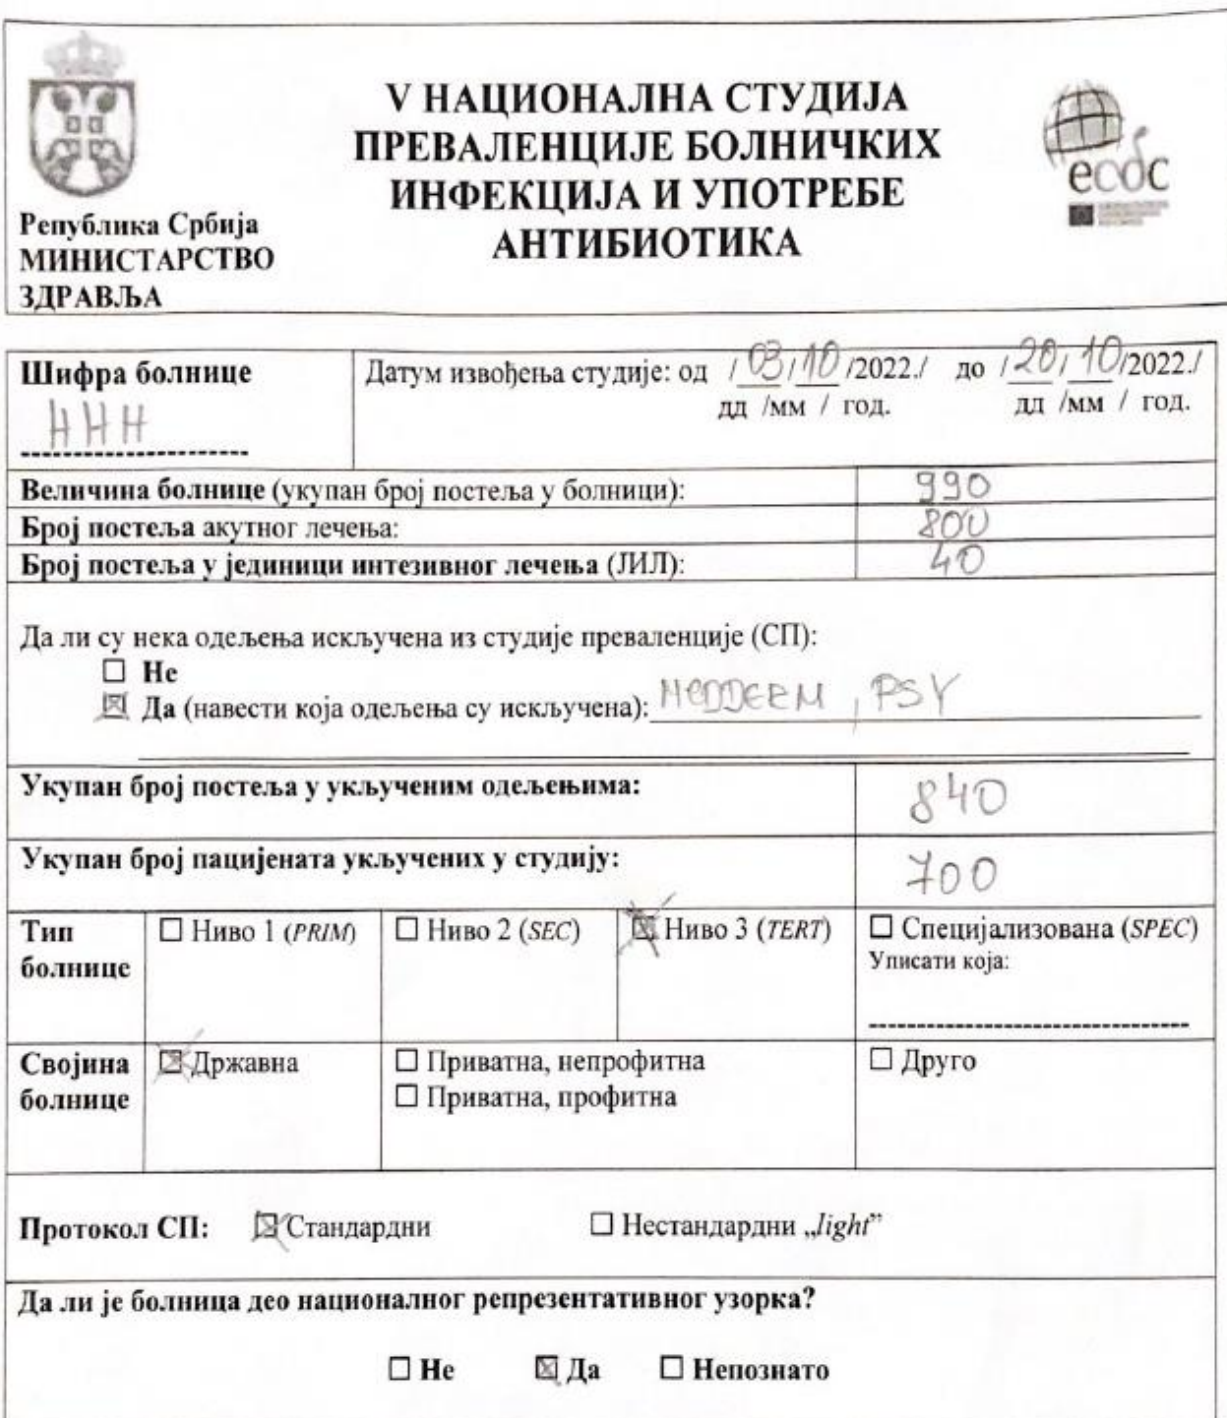 V НАЦИОНАЛНА СТУДИЈА
ПРЕВАЛЕНЦИЈЕ БОЛНИЧКИХ
ИНФЕКЦИЈА И УПОТРЕБЕ
АНТИБИОТИКА
Република Србија
МИНИСТАРСТВО
ЗДРАВЉА
ecdc
Шифра болнице
HHH
Датум извођења студије: од / 03 / 10 /2022./ до / 20 / 10 /2022./
дд /мм / год. дд /мм / год.
Величина болнице (укупан број постеља у болници): 990
Број постеља акутног лечења: 800
Број постеља у јединици интезивног лечења (ЈИЛ): 40
Да ли су нека одељења искључена из студије преваленције (СП):
☐ Не
☒ Да (навести која одељења су искључена): MEDDERM, PSY
Укупан број постеља у укљученим одељењима: 840
Укупан број пацијената укључених у студију: 700
Тип болнице
☐ Ниво 1 (PRIM)
☐ Ниво 2 (SEC)
☒ Ниво 3 (TERT)
☐ Специјализована (SPEC)
Уписати која:
Својина болнице
☒ Државна
☐ Приватна, непрофитна
☐ Приватна, профитна
☐ Друго
Протокол СП: ☒ Стандардни ☐ Нестандардни „light”
Да ли је болница део националног репрезентативног узорка?
☐ Не ☒ Да ☐ Непознато